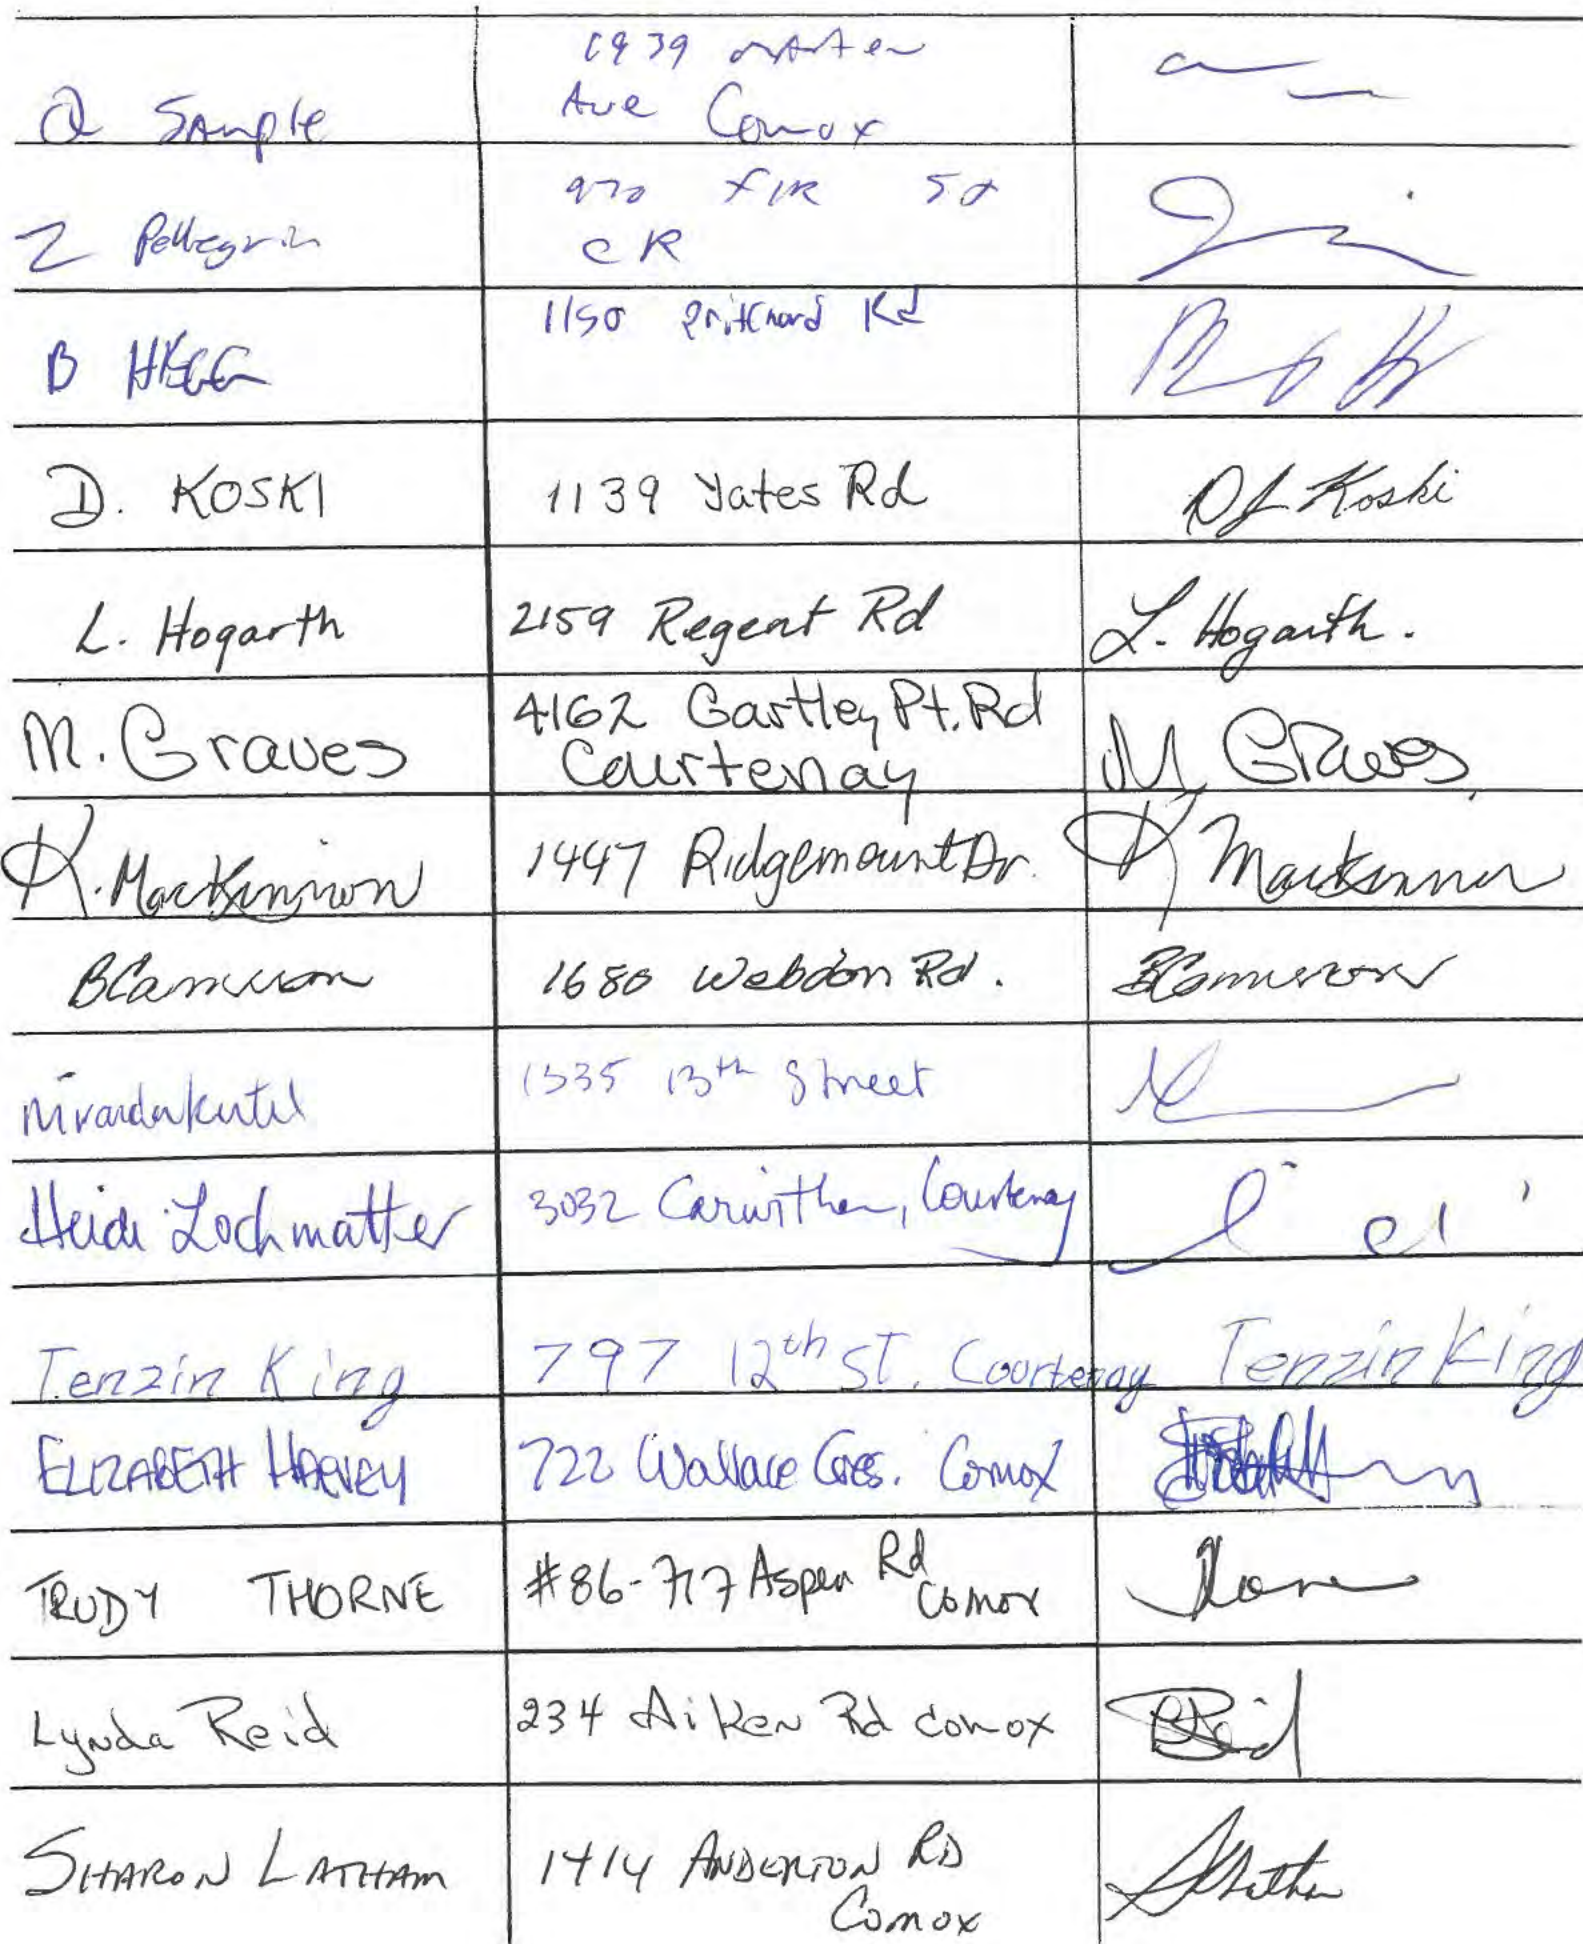 Q Sample
1939
Ave Comox
Z Pellegrin
970 FIR St
CR
B HEGG
1150 Pritchard Rd
D. KOSKI
1139 Yates Rd
DL Koski
L. Hogarth
2159 Regent Rd
L. Hogarth.
M. Graves
4162 Gartley Pt. Rd
Courtenay
M Graves
K. MacKinnon
1447 Ridgemount Dr.
K MacKinnon
B Cameron
1680 Webdon Rd.
B Cameron
Miranda Kutel
1335 13th Street
Heidi Lochmatter
3032 Carwithen, Courtenay
Tenzin King
797 12th ST. Courtenay
Tenzin King
ELIZABETH HARVEY
722 Wallace Cres. Comox
TRUDY THORNE
#86-717 Aspen Rd
Comox
Lynda Reid
234 Aiken Rd Comox
SHARON LATHAM
1414 ANDERTON RD
Comox